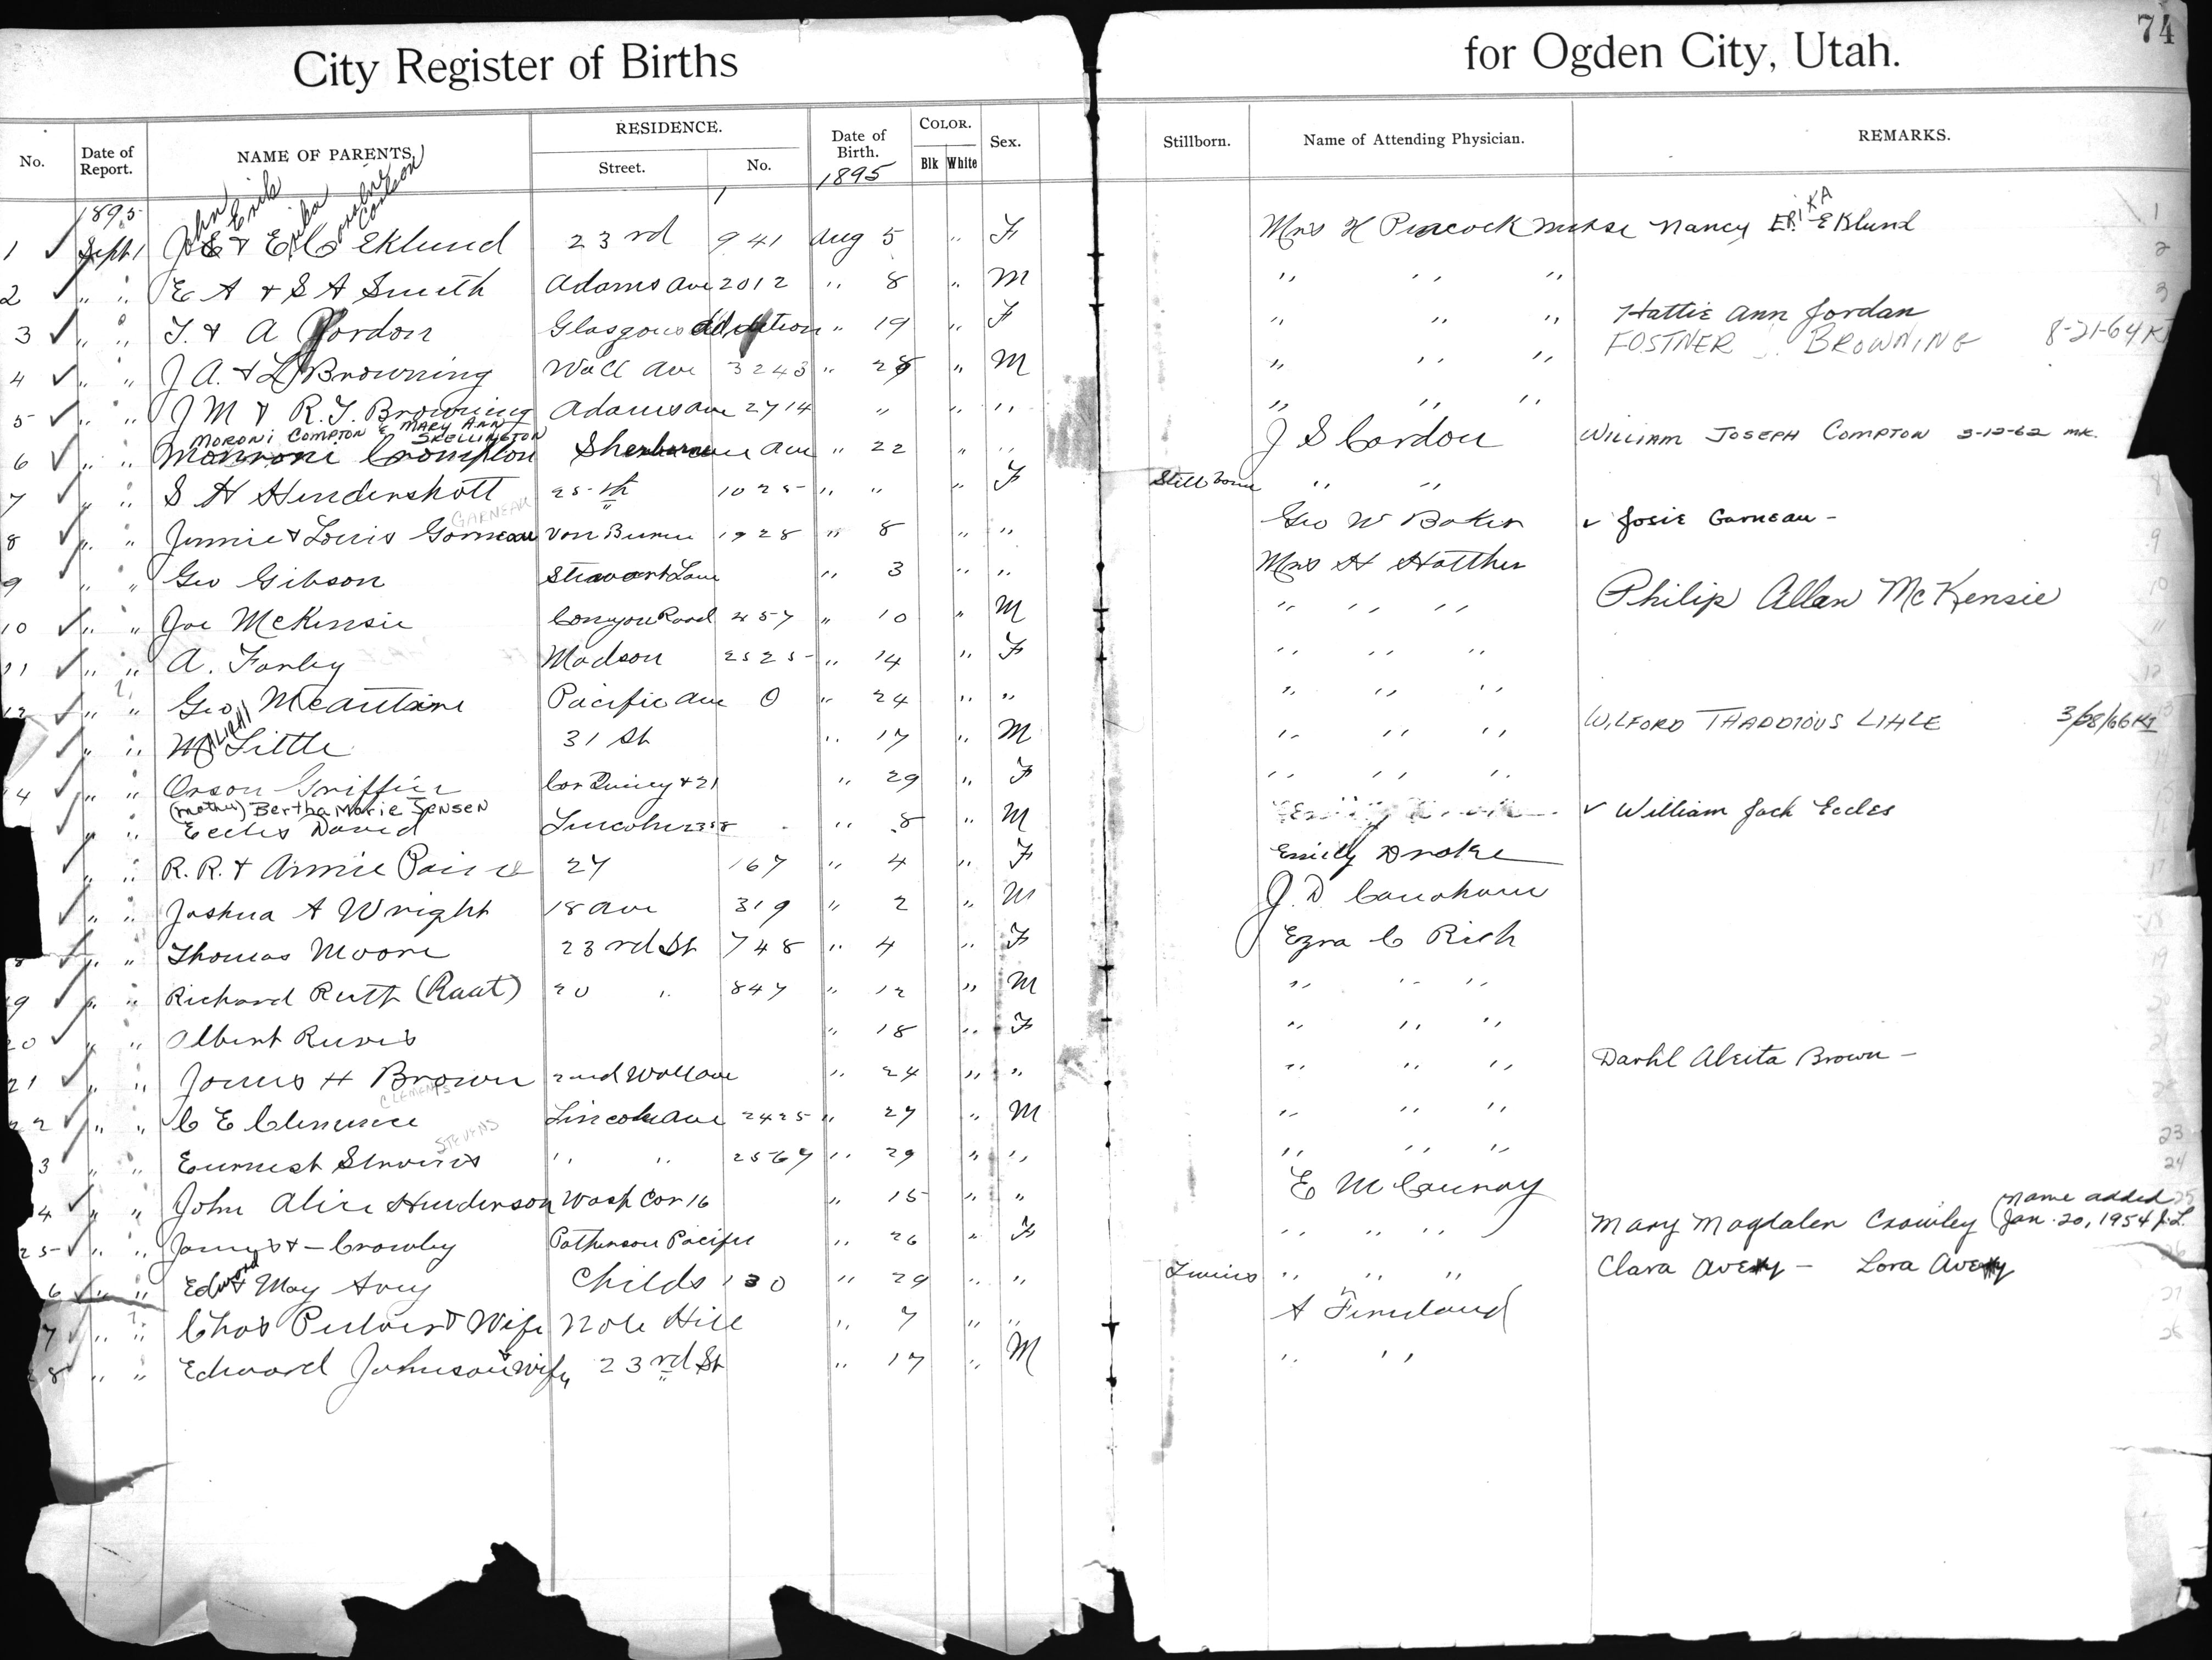 74
City Register of Births for Ogden City, Utah.
No. Date of Report. NAME OF PARENTS. RESIDENCE. Street. No. Date of Birth. 1895 COLOR. Blk White Sex. Stillborn. Name of Attending Physician. REMARKS.
1895
John Erik Carlson
1 ✓ Sept 1 J E & E C Eklund 23rd 941 Aug 5 " F Mrs H Peacock nurse Nancy ERIKA Eklund
2 ✓ " " E A & S A Smith Adams Ave 2012 " 8 " M " " "
3 ✓ " " T. & A Jordon Glasgow addition " 19 " F " " " Hattie Ann Jordan
4 ✓ " " J A. & L Browning Wall Ave 3243 " 28 " M " " " FOSTNER J. BROWNING 8-21-64 K
5 ✓ " " J M & R. T. Browning Adams ave 2714 " " " " " "
MORONI COMPTON & MARY ANN SKELLINGTON
6 ✓ " " Monroni Crompton ave " 22 " " J S Gordon WILLIAM JOSEPH COMPTON 3-12-62 MK.
7 ✓ " " S H Hendershott 25th 1025 " " " F Still born " "
GARNEAU
8 ✓ " " Jennie & Louis Garneau Van Buren 1928 " 8 " " Geo W Baker ✓ Josie Garneau -
9 ✓ " " Geo Gibson Stewart Lane " 3 " " Mrs H Hatther
10 ✓ " " Joe McKinsie Canyon Road 457 " 10 " M " " " Philip Allan McKensie
11 ✓ " " A. Farley Madson 2525 " 14 " F " " "
12 ✓ " " Geo Pacific Ave 0 " 24 " " " " "
✓ " " M Little 31 St " 17 " M " " " WILFORD THADDIOUS LITTLE 3/28/66 KI
4 ✓ " " Orson Griffin Cor Quincy & 21 " 29 " F " " "
(mother) Bertha Marie Jensen
✓ " " Eccles David Lincoln " 8 " M ✓ William Jack Eccles
✓ " " R. R. & Annie 27 167 " 4 " F Emily Drake
✓ " " Joshua A Wright 18 ave 319 " 2 " M J. D.
8 ✓ " " Thomas Moore 23rd St 748 " 4 " F Ezra C Rich
9 ✓ " " Richard Ruth (Raat) 20 " 847 " 12 " M " " "
20 ✓ " " Albert Reeves " 18 " F " " "
21 ✓ " " James H Brown 2nd Wall ave " 24 " " " " " Darhl Aleita Brown -
CLEMENTS
22 ✓ " " C E Clemence Lincoln Ave 2425 " 27 " M " " "
STEVENS
3 " " Earnest " " 2567 " 29 " " " " "
4 ✓ " " John Alice Henderson Wash Cor 16 " 15 " " E M Conroy
25 ✓ " " James & - Crowley Patterson Pacific " 26 " F " " " " Mary Magdalen Crowley (name added Jan. 20, 1954 J.L.
6 ✓ " " Edward & May Avry Childs 130 " 29 " " Twins " " " Clara Avery - Lora Avery
7 ✓ " " Chas & Wife Nole Hill " 7 " " A
8 " " Edward Johnson & Wife 23rd St " 17 " M " "